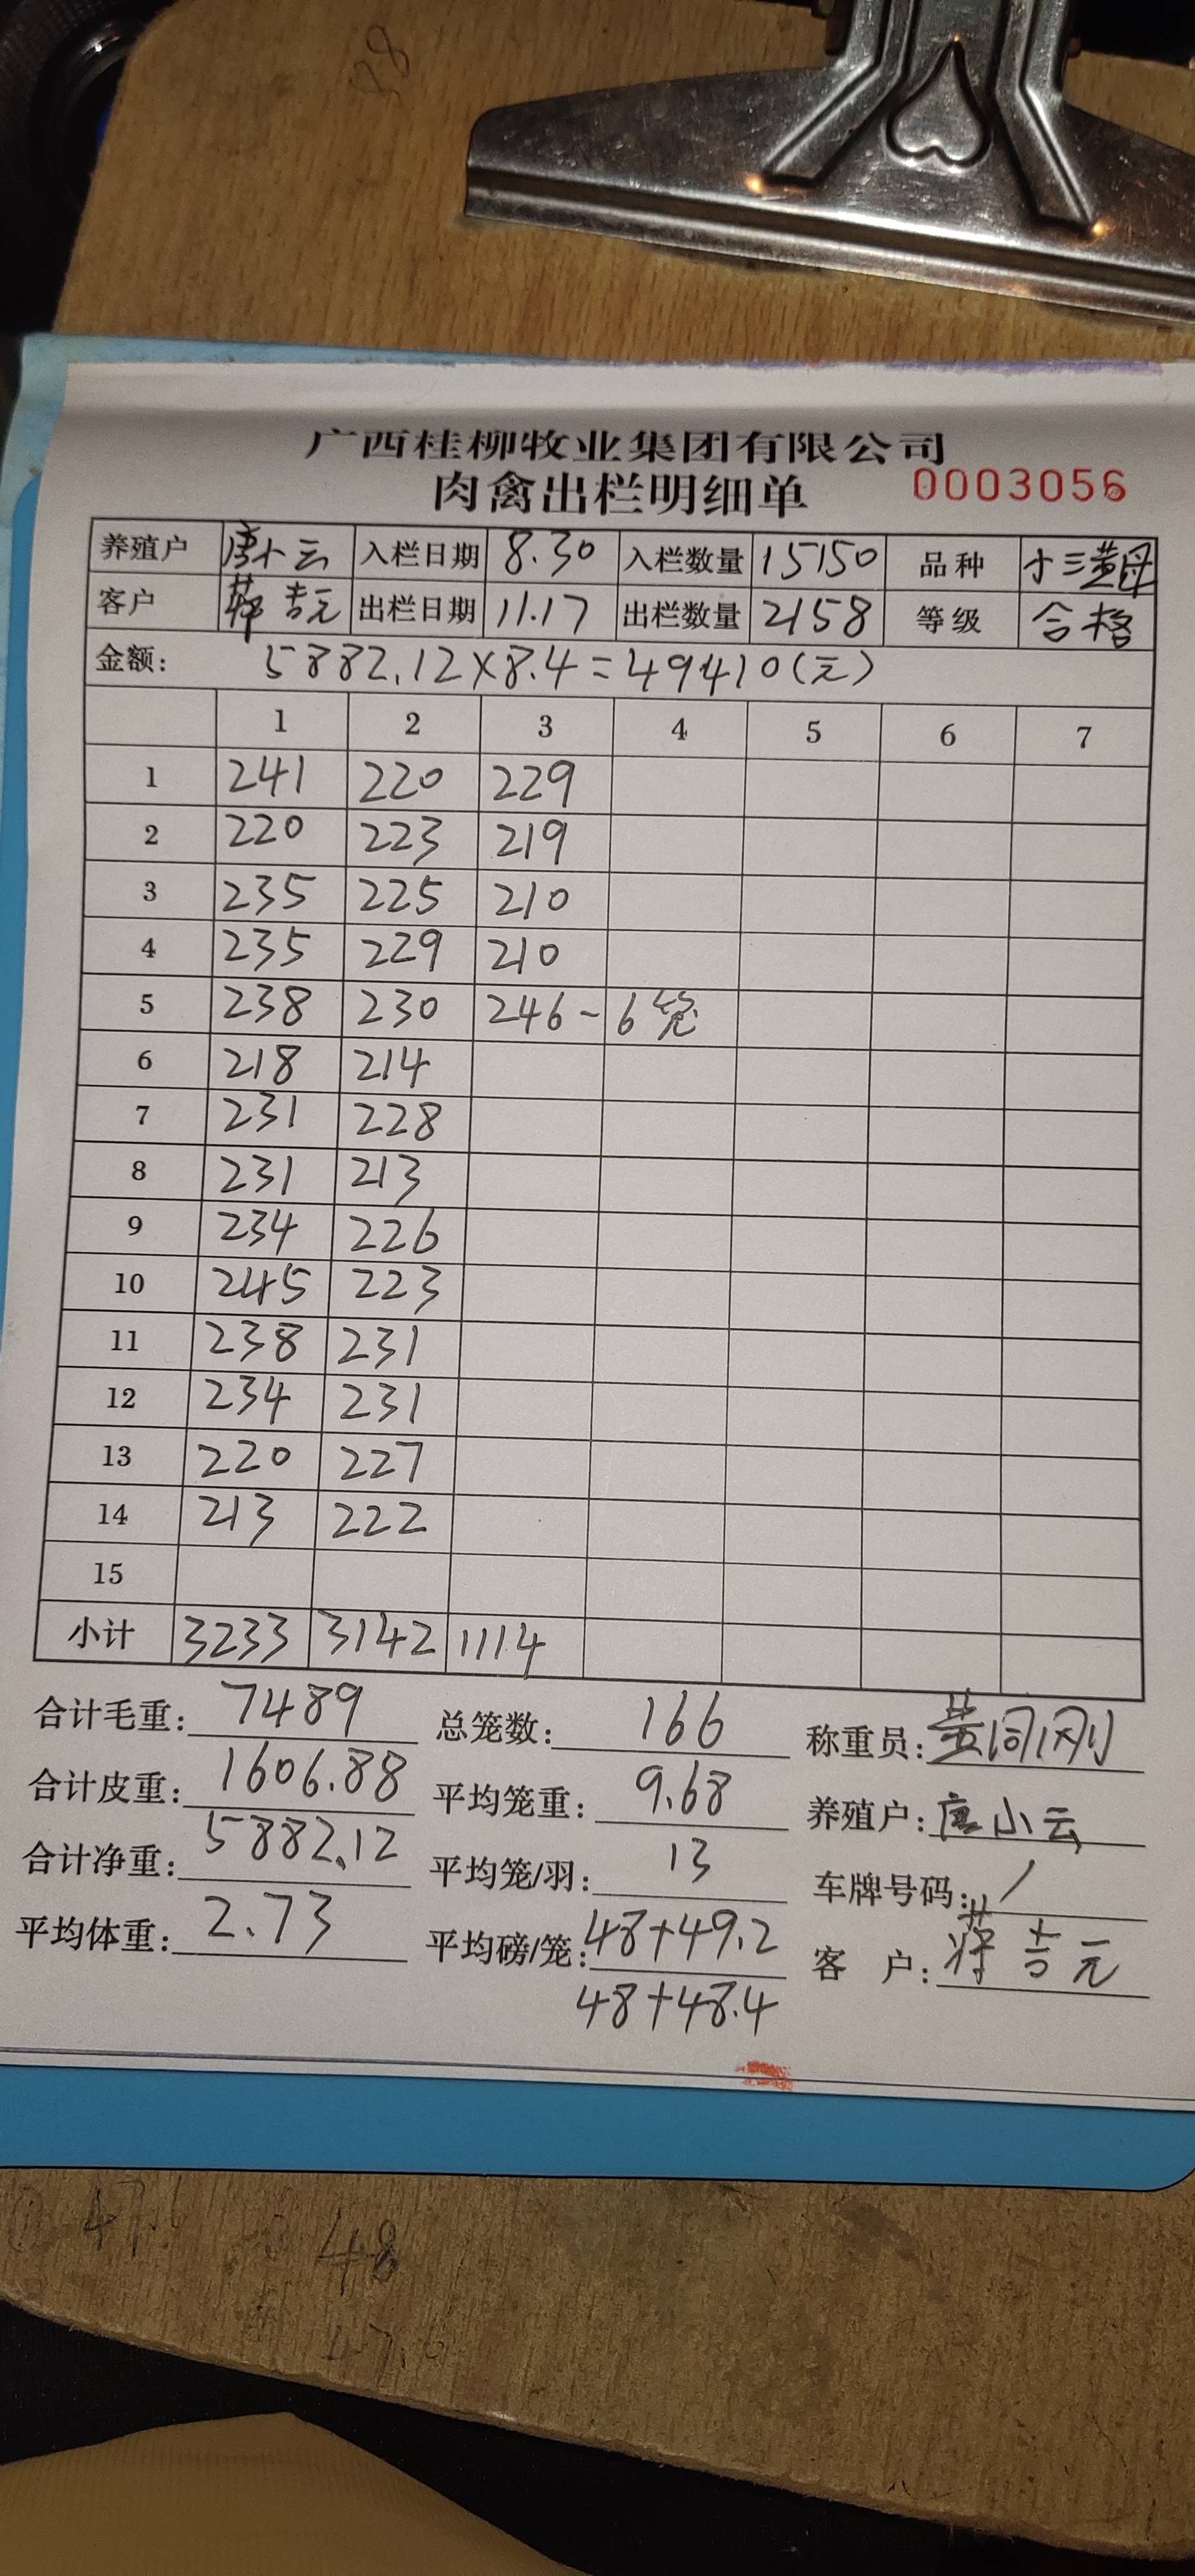 广西桂柳牧业集团有限公司
肉禽出栏明细单 0003056
养殖户 唐小云 入栏日期 8.30 入栏数量 15150 品种 小三黄母
客户 蒋吉元 出栏日期 11.17 出栏数量 2158 等级 合格
金额: 5882.12×8.4=49410(元)
1 2 3 4 5 6 7
1 241 220 229
2 220 223 219
3 235 225 210
4 235 229 210
5 238 230 246-6笼
6 218 214
7 231 228
8 231 213
9 234 226
10 245 223
11 238 231
12 234 231
13 220 227
14 213 222
15
小计 3233 3142 1114
合计毛重: 7489 总笼数: 166 称重员:
合计皮重: 1606.88 平均笼重: 9.68 养殖户: 唐小云
合计净重: 5882.12 平均笼/羽: 13 车牌号码: /
平均体重: 2.73 平均磅/笼: 48+49.2 客 户: 蒋吉元
48+48.4
48